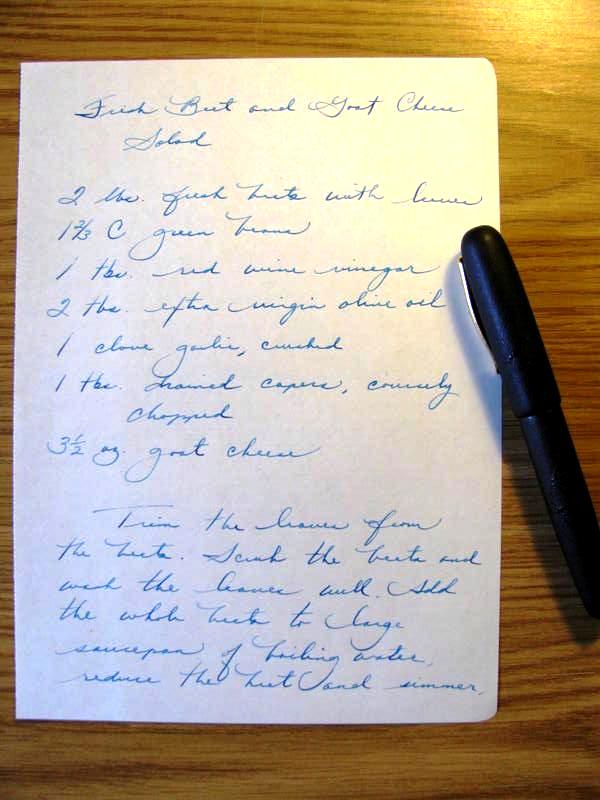 Fresh Beet and Goat Cheese
Salad
2 lbs. fresh beets with leaves
1 2/3 C green beans
1 tbs. red wine vinegar
2 tbs. extra virgin olive oil
1 clove garlic, crushed
1 tbs. drained capers, coursely
chopped
3 1/2 oz. goat cheese
Trim the leaves from
the beets. Scrub the beets and
wash the leaves well. Add
the whole beets to large
saucepan of boiling water,
reduce the heat and simmer,